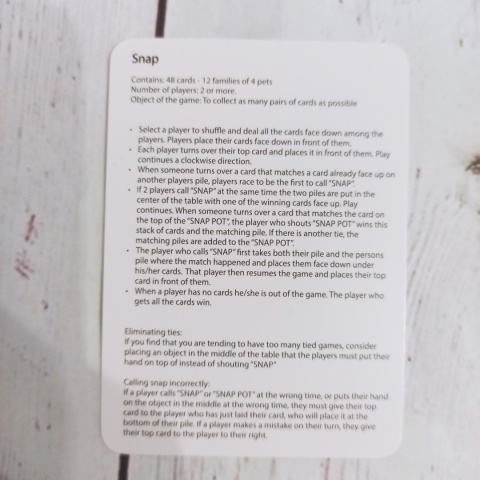 Snap
Contains: 48 cards - 12 families of 4 pets
Number of players: 2 or more.
Object of the game: To collect as many pairs of cards as possible
• Select a player to shuffle and deal all the cards face down among the
players. Players place their cards face down in front of them.
• Each player turns over their top card and places it in front of them. Play
continues a clockwise direction.
• When someone turns over a card that matches a card already face up on
another players pile, players race to be the first to call "SNAP".
• If 2 players call "SNAP" at the same time the two piles are put in the
center of the table with one of the winning cards face up. Play
continues. When someone turns over a card that matches the card on
the top of the "SNAP POT", the player who shouts "SNAP POT" wins this
stack of cards and the matching pile. If there is another tie, the
matching piles are added to the "SNAP POT".
• The player who calls "SNAP" first takes both their pile and the persons
pile where the match happened and places them face down under
his/her cards. That player then resumes the game and places their top
card in front of them.
• When a player has no cards he/she is out of the game. The player who
gets all the cards win.
Eliminating ties:
If you find that you are tending to have too many tied games, consider
placing an object in the middle of the table that the players must put their
hand on top of instead of shouting "SNAP"
Calling snap incorrectly:
If a player calls "SNAP" or "SNAP POT" at the wrong time, or puts their hand
on the object in the middle at the wrong time, they must give their top
card to the player who has just laid their card, who will place it at the
bottom of their pile. If a player makes a mistake on their turn, they give
their top card to the player to their right.